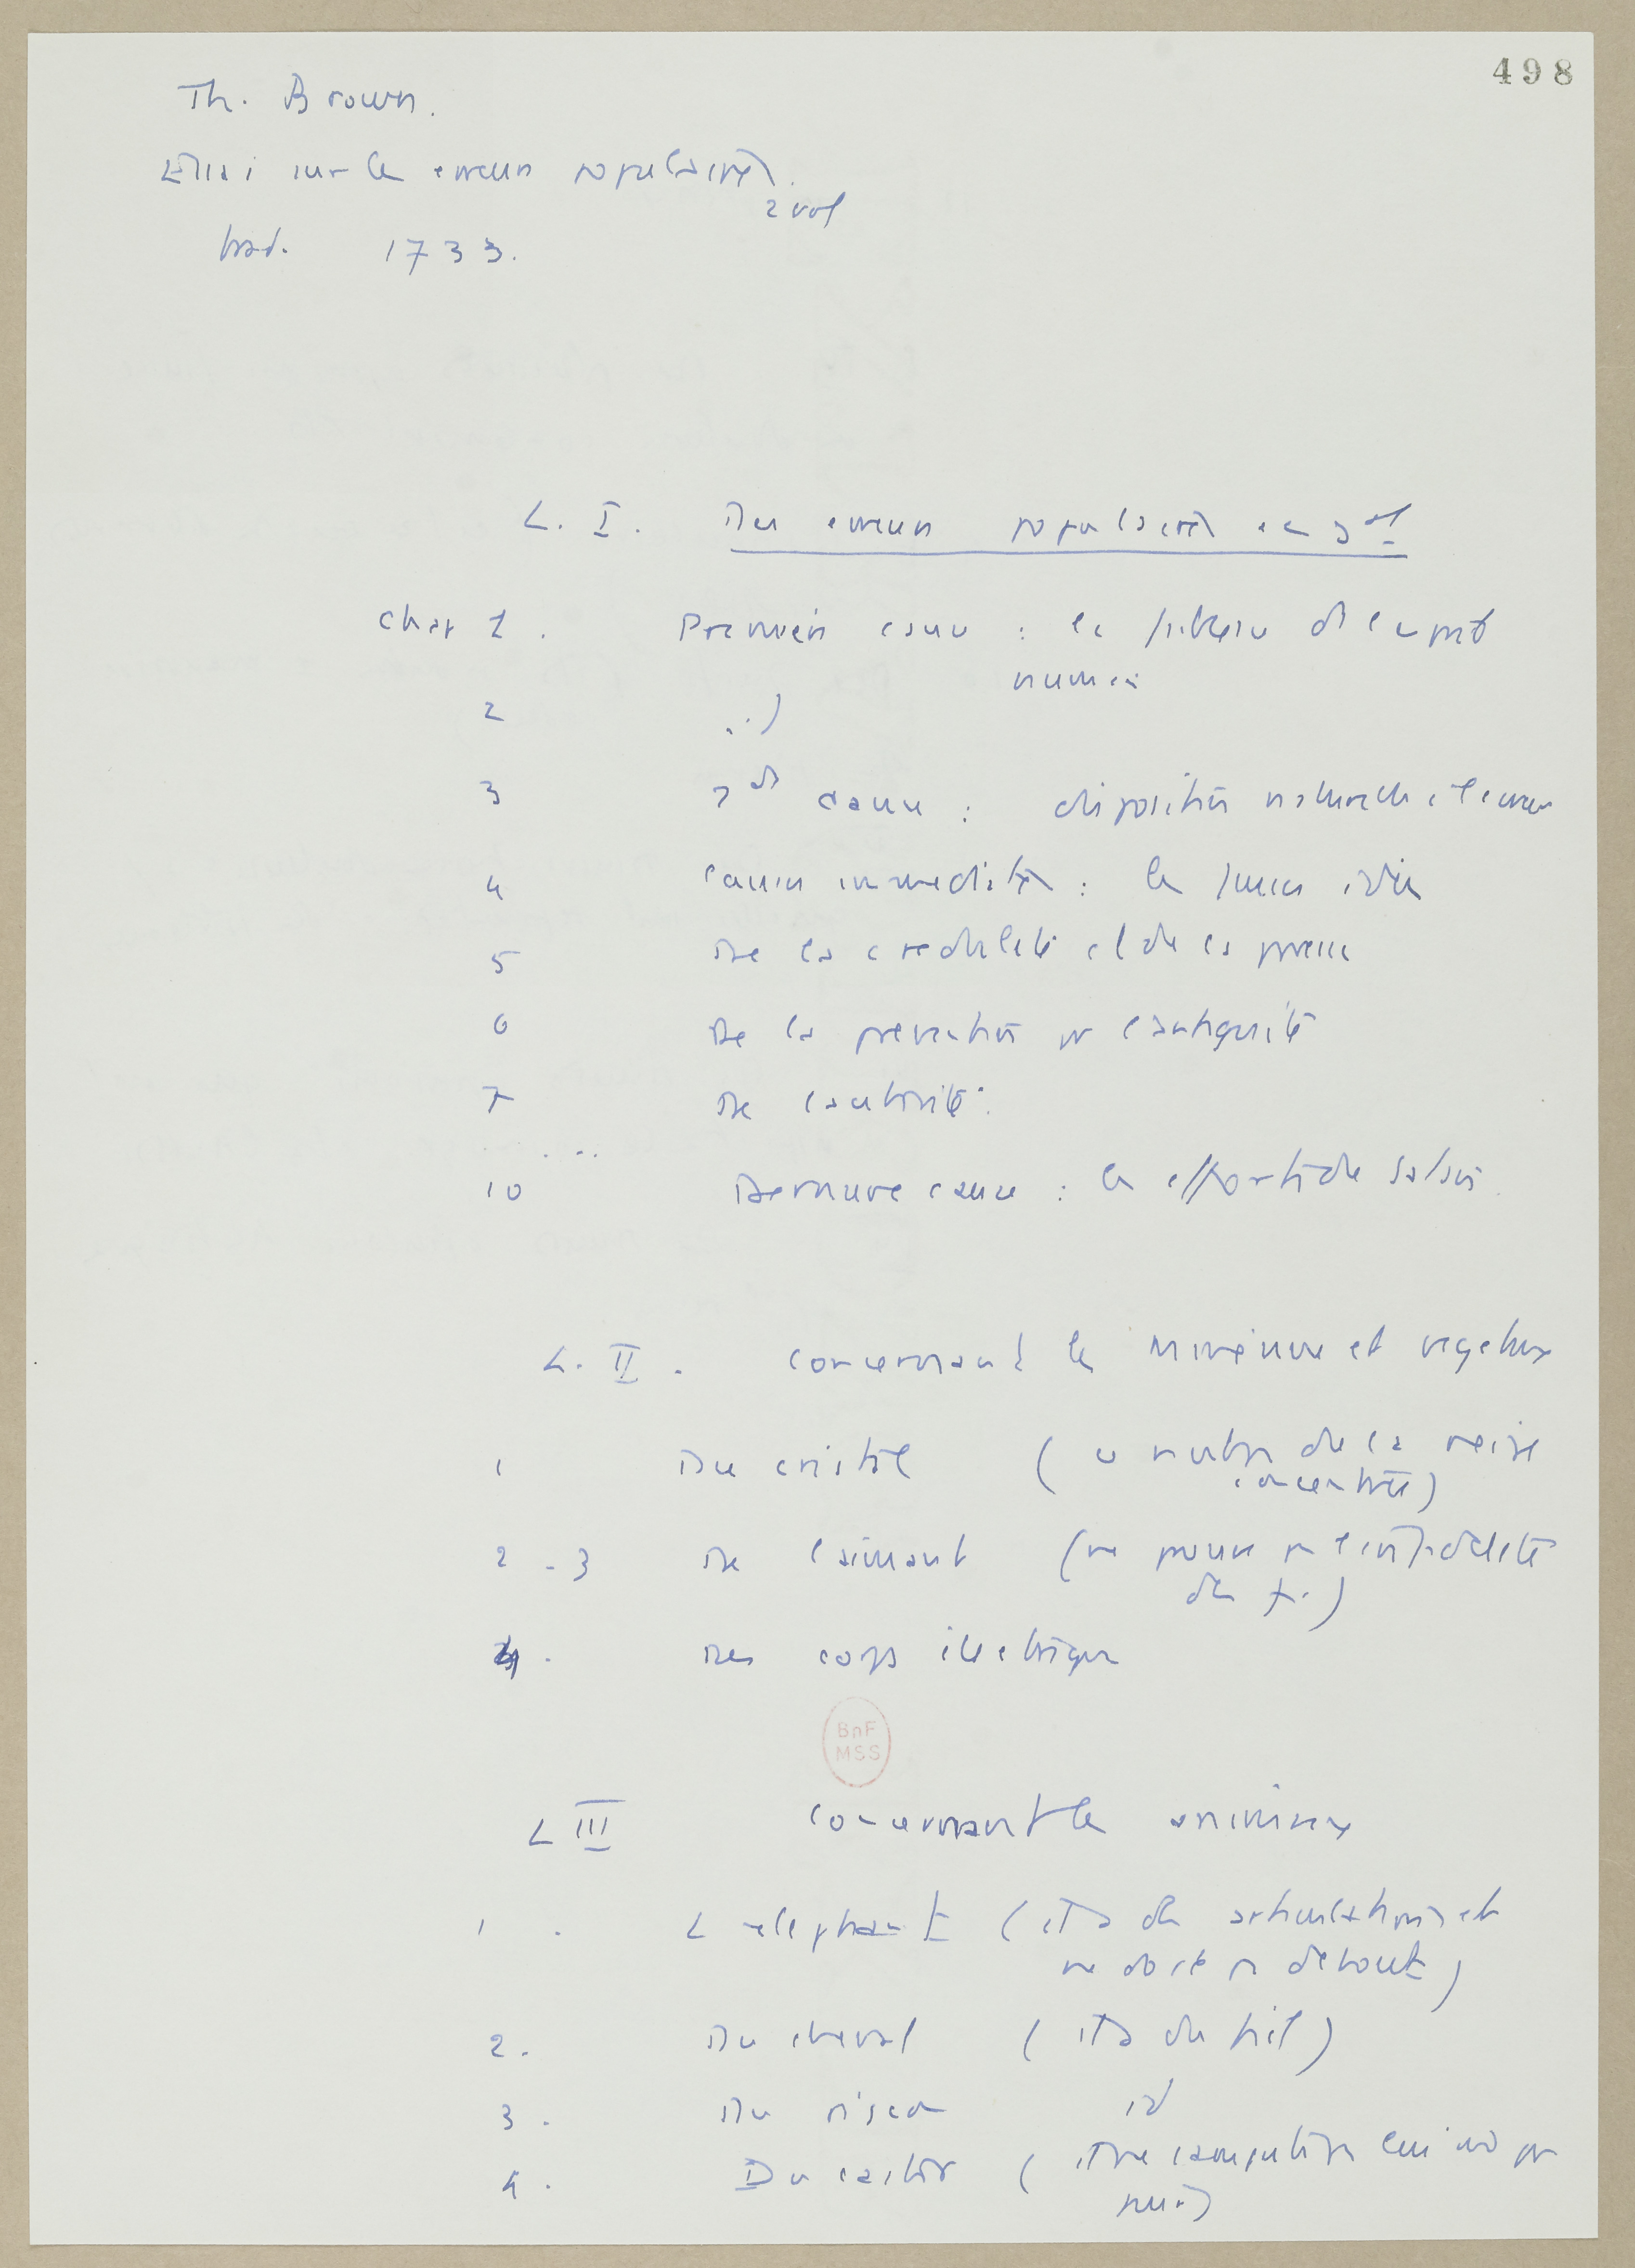 498
Th. Brown.
Essai sur les erreurs populaires.
2 vol
trad. 1733.
L. I. Des erreurs populaires en gal
chap 1. Première cause : la faiblesse de l'esprit
humain
2 id)
3 2de cause : disposition naturelle à l'erreur
4 causes immédiates : les fausses idées
5 De la crédulité et de la paresse
6 De la prévention pr l'antiquité
7 De l'autorité.
. ...
10 Dernière cause : les efforts de Satan.
L. II. concernant les minéraux et végétaux
1 Du cristal ( de la neige
concentrée)
2 - 3 De l'aimant (ne prouve pas l'infidélité
des f.)
4. Des corps électriques
BnF
MSS
L III concernant les animaux
1. L'éléphant (il a des articulations et
ne dort pas debout)
2. Du cheval (il a du fiel)
3. Du pigeon id
4. Du castor (